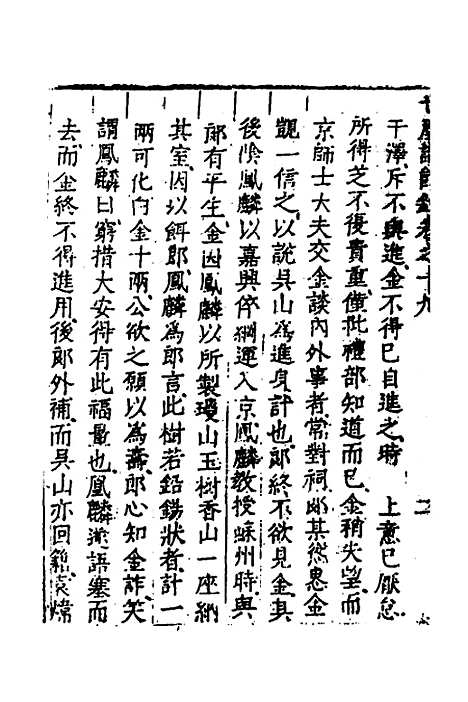 干澤斥不與進金不得已自進之時　上意已厭怠
所得芝不復貴重僅批禮部知道而已金稍失望而
京師士大夫交金談內外事者常對祠郎某慫恿金
觀一信之以說吳山為進身計也郎終不欲見金其
後陰鳳麟以嘉興倅綱運入京鳳麟教授蘇州時與
郎有平生金因鳳麟以所製瓊山玉樹香山一座納
其室因以餌郎鳳麟為郎言此樹若鉛錫狀者計一
兩可化白金十兩公欲之願以為壽郎心知金詐笑
謂鳳麟曰窮措大安得有此福量也鳳麟遂語塞而
去而金終不得進用後郎外補而吳山亦回籍袁煒